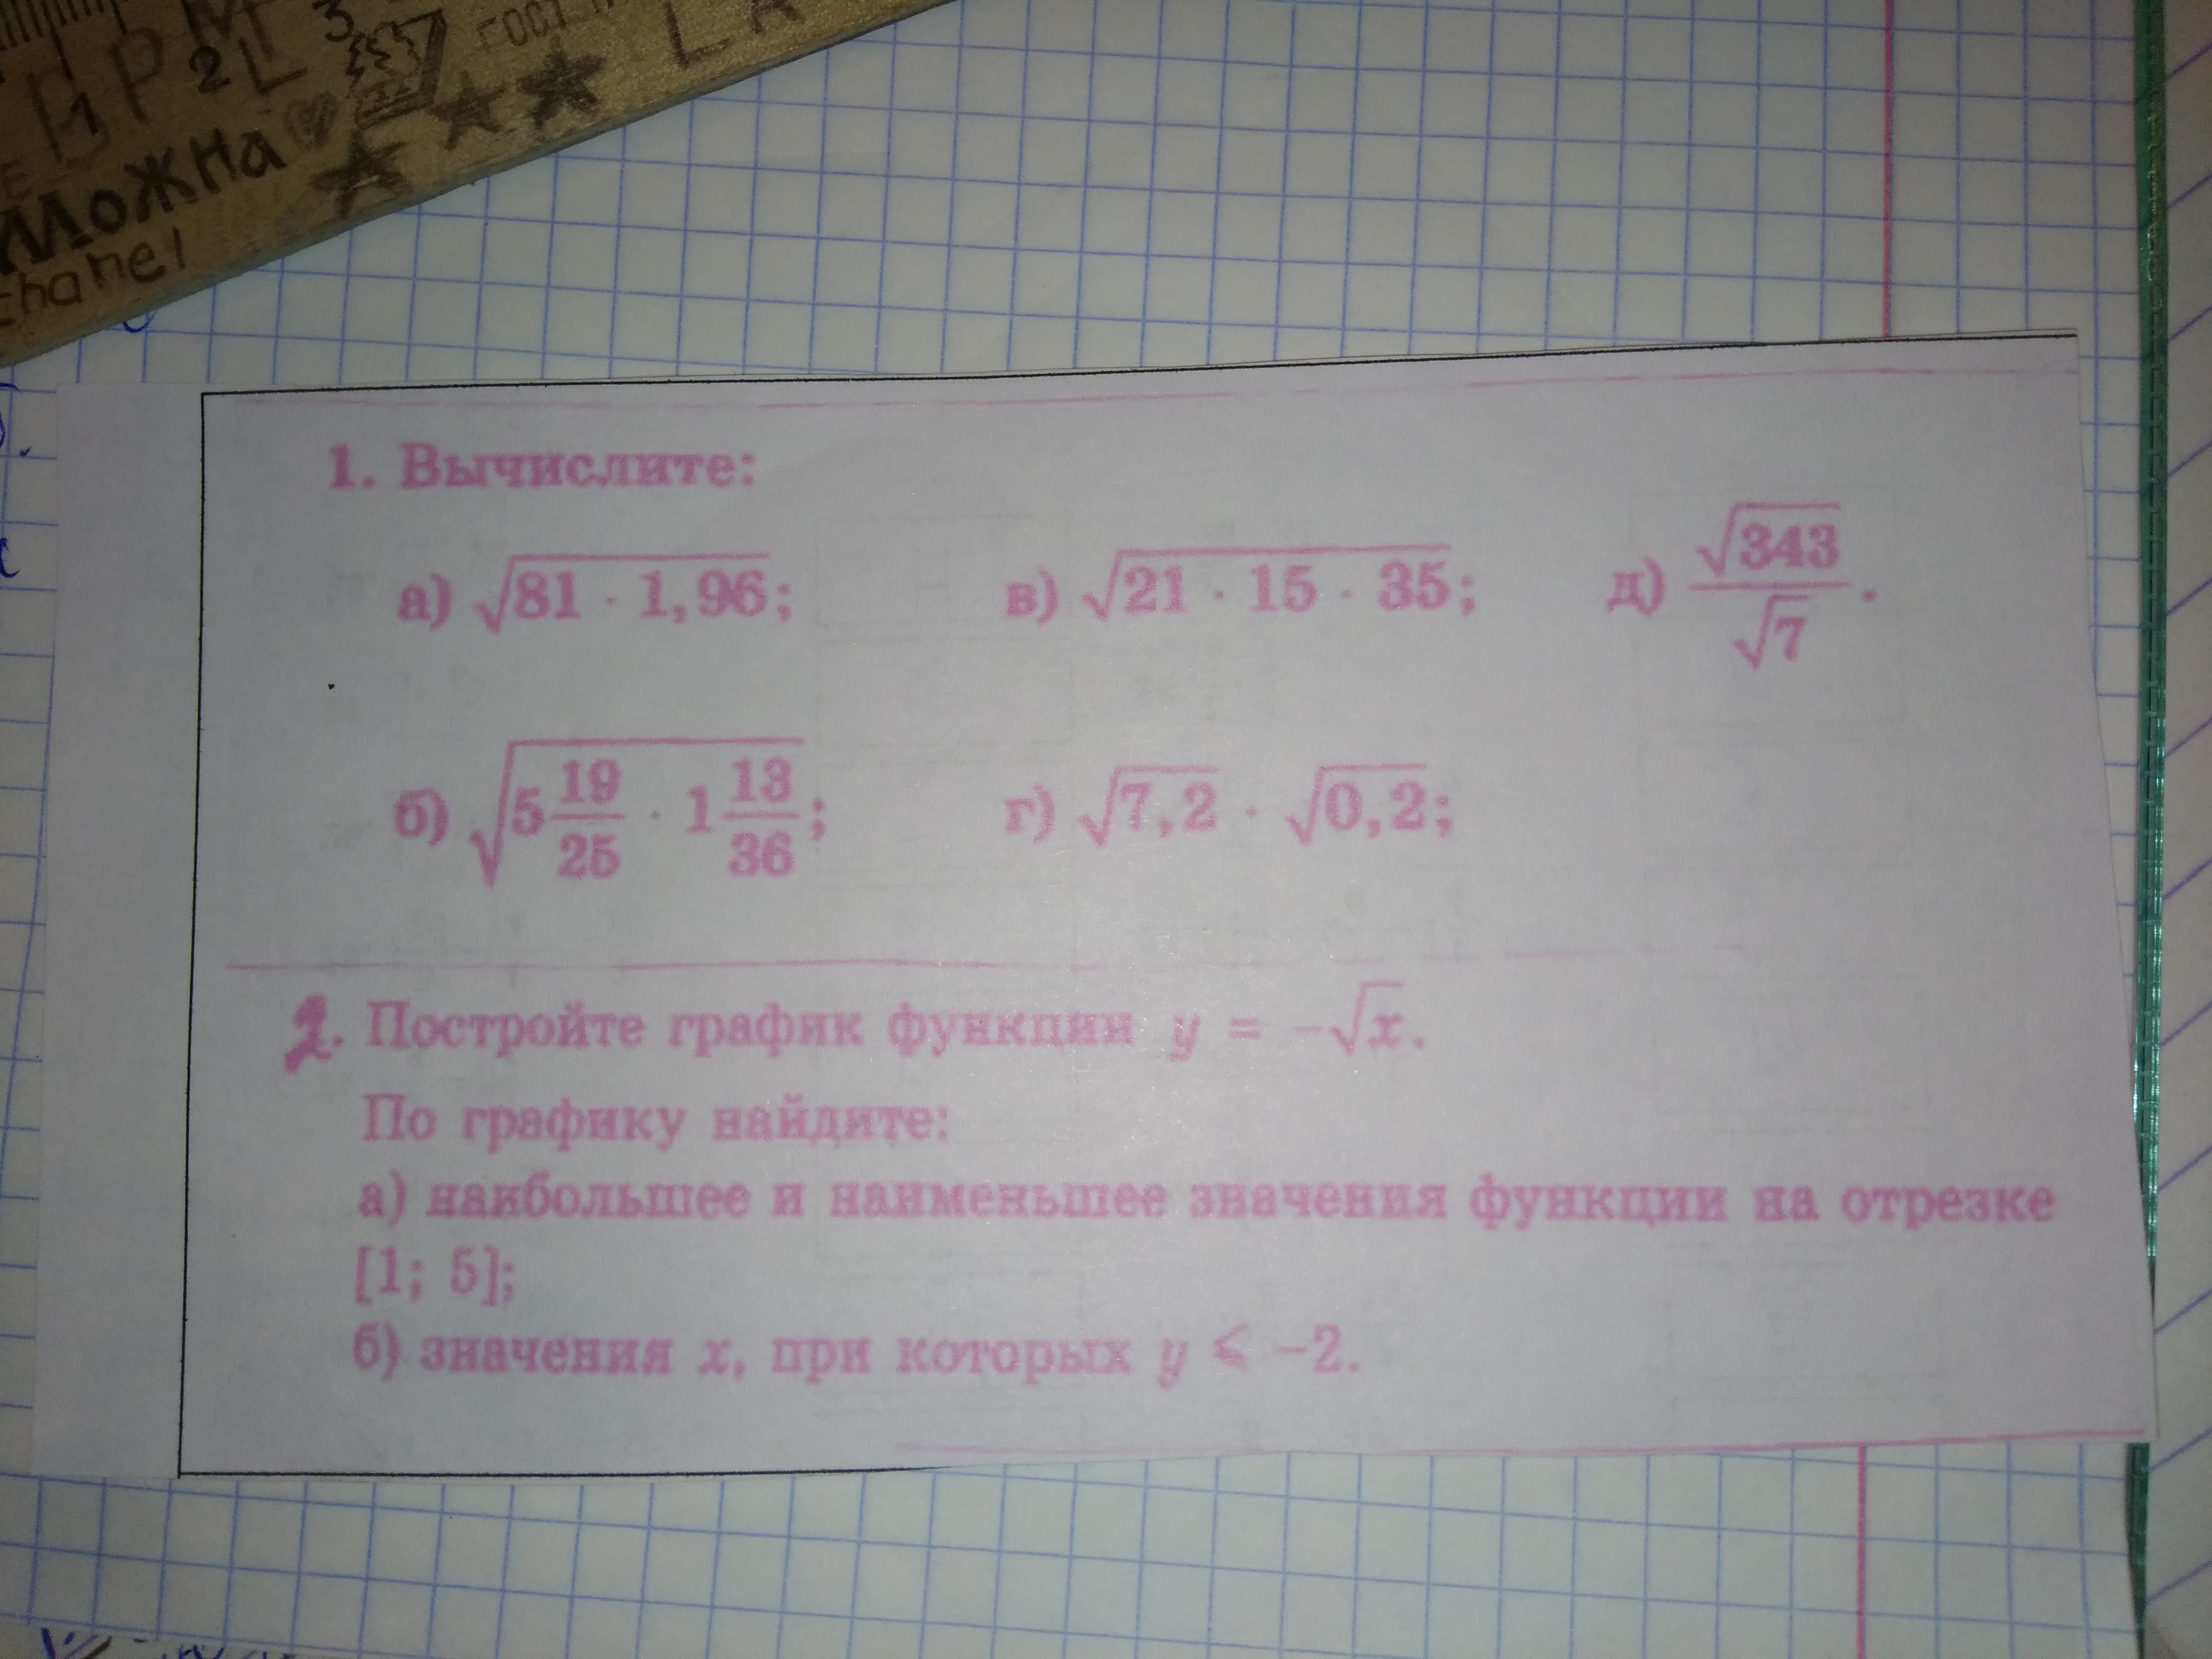 3
ГОСТ
2
1
Можна
chanel
1. Вычислите:
а) √81 · 1,96; в) √21 · 15 · 35; д) √343 / √7.
б) √5 19/25 · 1 13/36; г) √7,2 · √0,2;
2. Постройте график функции y = −√x.
По графику найдите:
а) наибольшее и наименьшее значения функции на отрезке
[1; 5];
б) значения x, при которых y ⩽ −2.